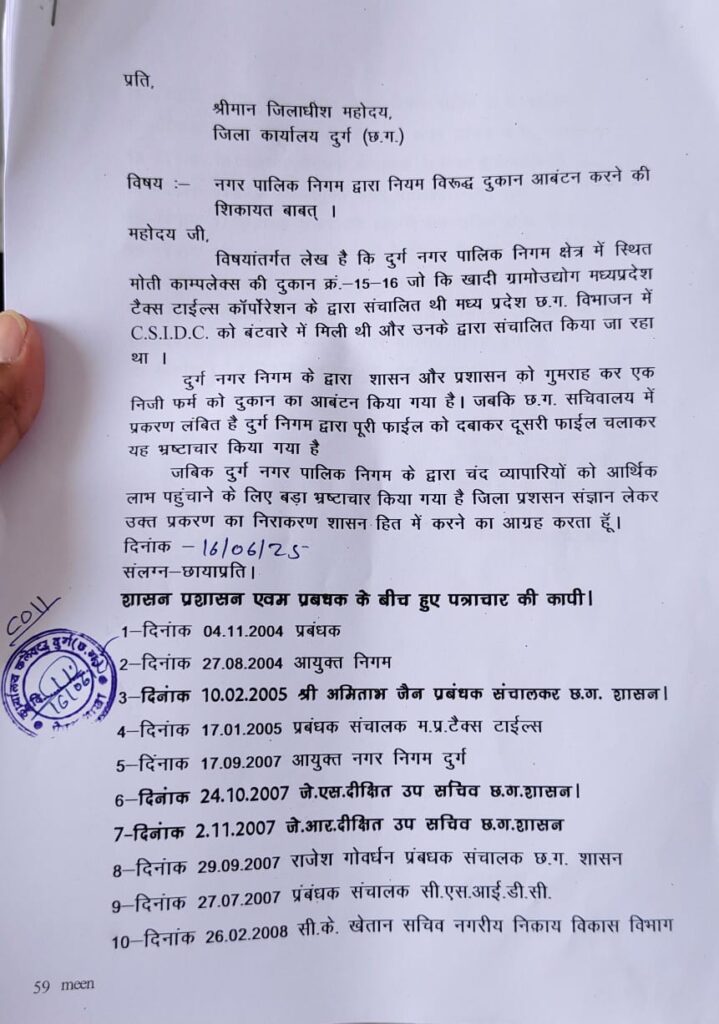 प्रति,
श्रीमान जिलाधीश महोदय,
जिला कार्यालय दुर्ग (छ.ग.)
विषय :– नगर पालिक निगम द्वारा नियम विरूद्ध दुकान आबंटन करने की
शिकायत बाबत् ।
महोदय जी,
विषयांतर्गत लेख है कि दुर्ग नगर पालिक निगम क्षेत्र में स्थित
मोती काम्पलेक्स की दुकान क्रं.–15–16 जो कि खादी ग्रामोउद्योग मध्यप्रदेश
टैक्स टाईल्स कॉर्पोरेशन के द्वारा संचालित थी मध्य प्रदेश छ.ग. विभाजन में
C.S.I.D.C. को बंटवारे में मिली थी और उनके द्वारा संचालित किया जा रहा
था ।
दुर्ग नगर निगम के द्वारा शासन और प्रशासन को गुमराह कर एक
निजी फर्म को दुकान का आबंटन किया गया है। जबकि छ.ग. सचिवालय में
प्रकरण लंबित है दुर्ग निगम द्वारा पूरी फाईल को दबाकर दूसरी फाईल चलाकर
यह भ्रष्टाचार किया गया है
जबिक दुर्ग नगर पालिक निगम के द्वारा चंद व्यापारियों को आर्थिक
लाभ पहुंचाने के लिए बड़ा भ्रष्टाचार किया गया है जिला प्रशसन संज्ञान लेकर
उक्त प्रकरण का निराकरण शासन हित में करने का आग्रह करता हूँ।
दिनांक – 16/06/25
संलग्न–छायाप्रति।
शासन प्रशासन एवम प्रबधक के बीच हुए पत्राचार की कापी।
1–दिनांक 04.11.2004 प्रबंधक
2–दिनांक 27.08.2004 आयुक्त निगम
3–दिनांक 10.02.2005 श्री अमिताभ जैन प्रबंधक संचालकर छ.ग. शासन।
4–दिनांक 17.01.2005 प्रबंधक संचालक म.प्र.टैक्स टाईल्स
5–दिंनाक 17.09.2007 आयुक्त नगर निगम दुर्ग
6–दिनांक 24.10.2007 जे.एस.दीक्षित उप सचिव छ.ग.शासन।
7-दिनांक 2.11.2007 जे.आर.दीक्षित उप सचिव छ.ग.शासन
8–दिनांक 29.09.2007 राजेश गोवर्धन प्रंबधक संचालक छ.ग. शासन
9–दिनांक 27.07.2007 प्रंबंधक संचालक सी.एस.आई.डी.सी.
10–दिनांक 26.02.2008 सी.के. खेतान सचिव नगरीय निकाय विकास विभाग
59 meen